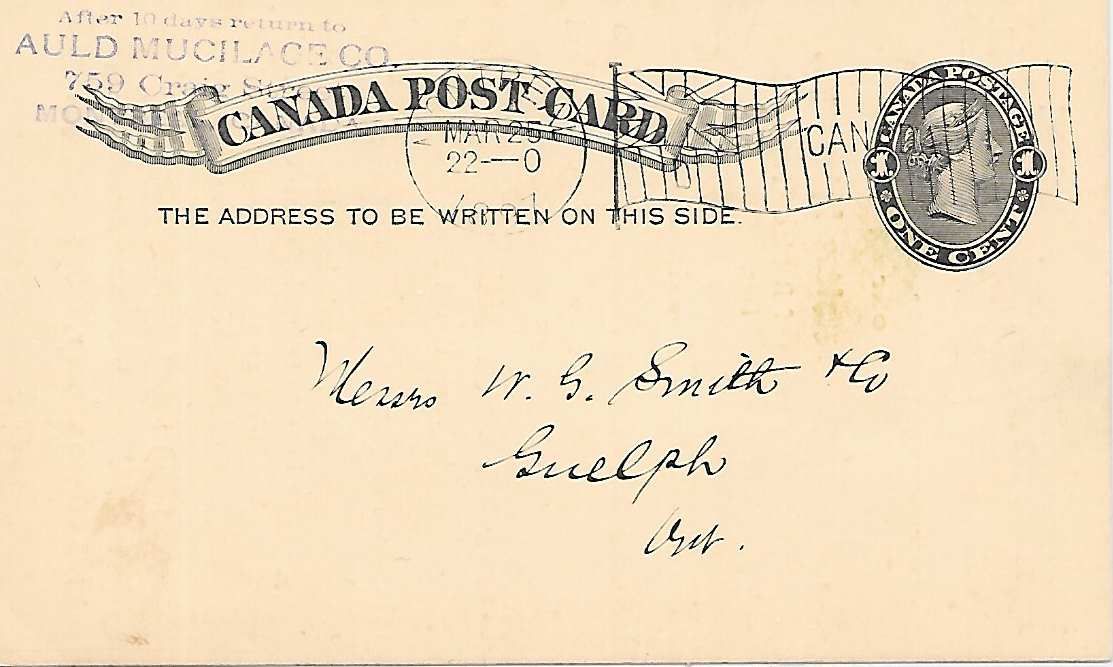 After 10 days return to
AULD MUCILAGE CO.
759 Craig Street
CANADA POST CARD
MAR 25
22—0
CAN
CANADA POSTAGE
1 1
ONE CENT
THE ADDRESS TO BE WRITTEN ON THIS SIDE.
Messrs W. G. Smith & Co
Guelph
Ont.